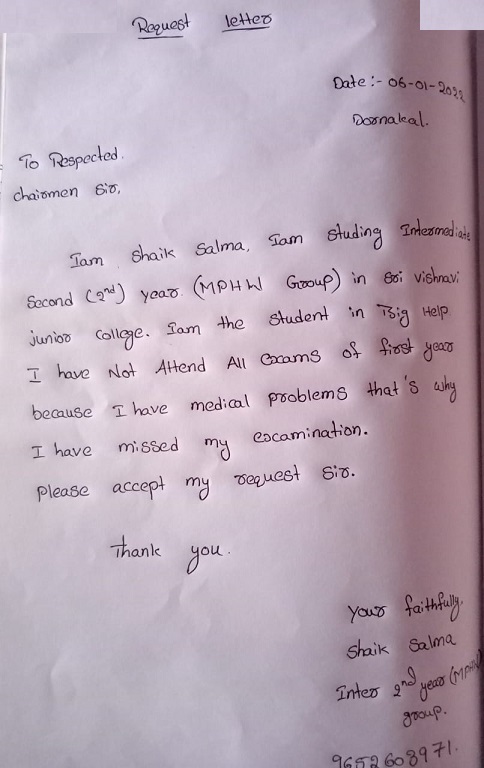 Request letter
Date :- 06-01-2022
Dornakal.
To Respected.
chairmen Sir,
Iam Shaik Salma, Iam studing Intermediate
Second (2nd) year (MPHW Group) in Sri vishnavi
junior college. Iam the student in Big Help
I have Not Attend All Exams of first year
because I have medical problems that's why
I have missed my examination.
please accept my request Sir.
Thank you.
your faithfully.
Shaik Salma
Inter 2nd year (MPHW)
group.
9652608971.